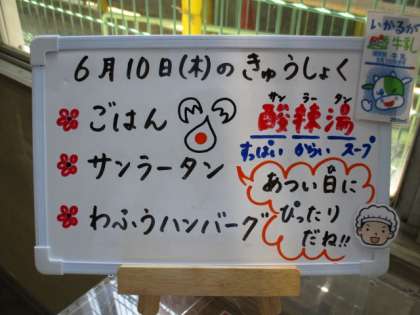 6月10日(木)のきゅうしょく
ごはん
サンラータン
わふうハンバーグ
サン ラー タン
酸辣湯
すっぱい からい スープ
あつい日に
ぴったり
だね!!
いかるが
牛乳